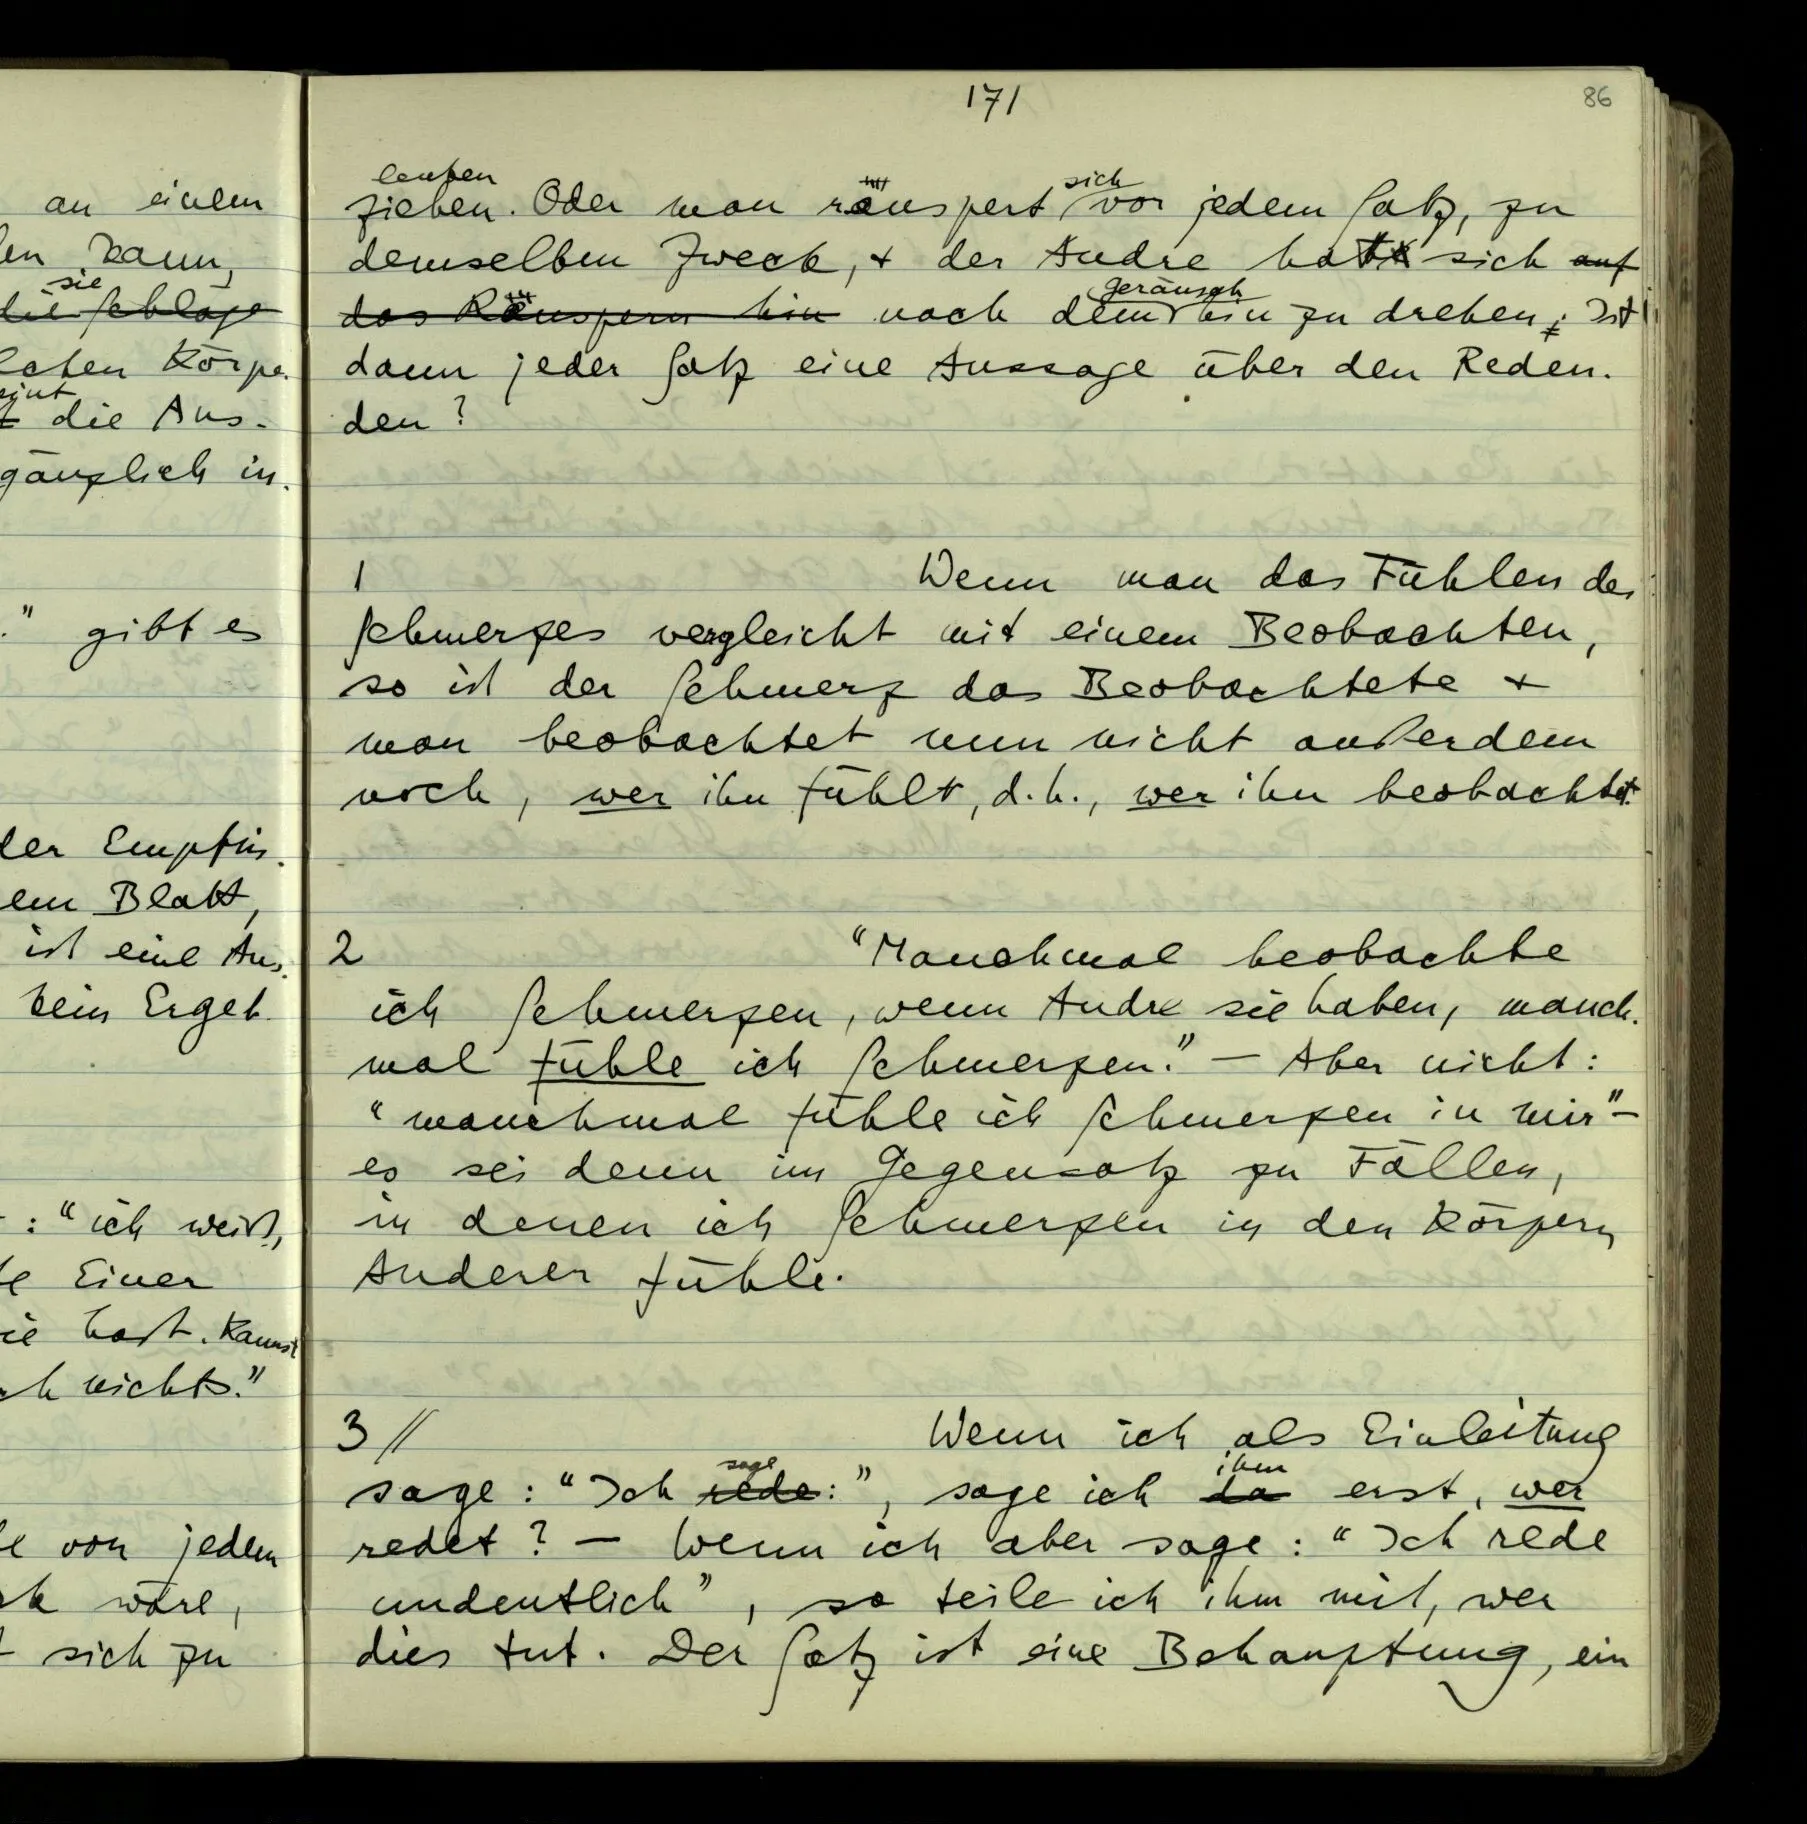 an einem
kann,
sie
die Schläge
Körpe.
die Aus-
gänzlich in.
." gibt es
der Empfin.
Blatt,
ist eine Aus.
kein Ergeb.
: "ich weiß,
Einer
hast. Kannst
nichts."
von jedem
wäre,
sich zu
171
86
lenken
ziehen. Oder man räuspert sich vor jedem Satz, zu
demselben Zweck, + der Andre hat sich auf
das Räuspern hin nach dem Geräusch hin zu drehen; Ist
dann jeder Satz eine Aussage über den Reden-
den?
1 Wenn man das Fühlen des
Schmerzes vergleicht mit einem Beobachten,
so ist der Schmerz das Beobachtete +
man beobachtet nun nicht außerdem
noch, wer ihn fühlt, d.h., wer ihn beobachtet.
2 "Manchmal beobachte
ich Schmerzen, wenn Andre sie haben, manch-
mal fühle ich Schmerzen." — Aber nicht:
"manchmal fühle ich Schmerzen in mir" —
es sei denn im Gegensatz zu Fällen,
in denen ich Schmerzen in den Körpern
Anderer fühle.
3 // Wenn ich als Einleitung
sage ihm
sage: "Ich rede:", sage ich da erst, wer
redet? — Wenn ich aber sage: "Ich rede
undeutlich", so teile ich ihm mit, wer
dies tut. Der Satz ist eine Behauptung, ein